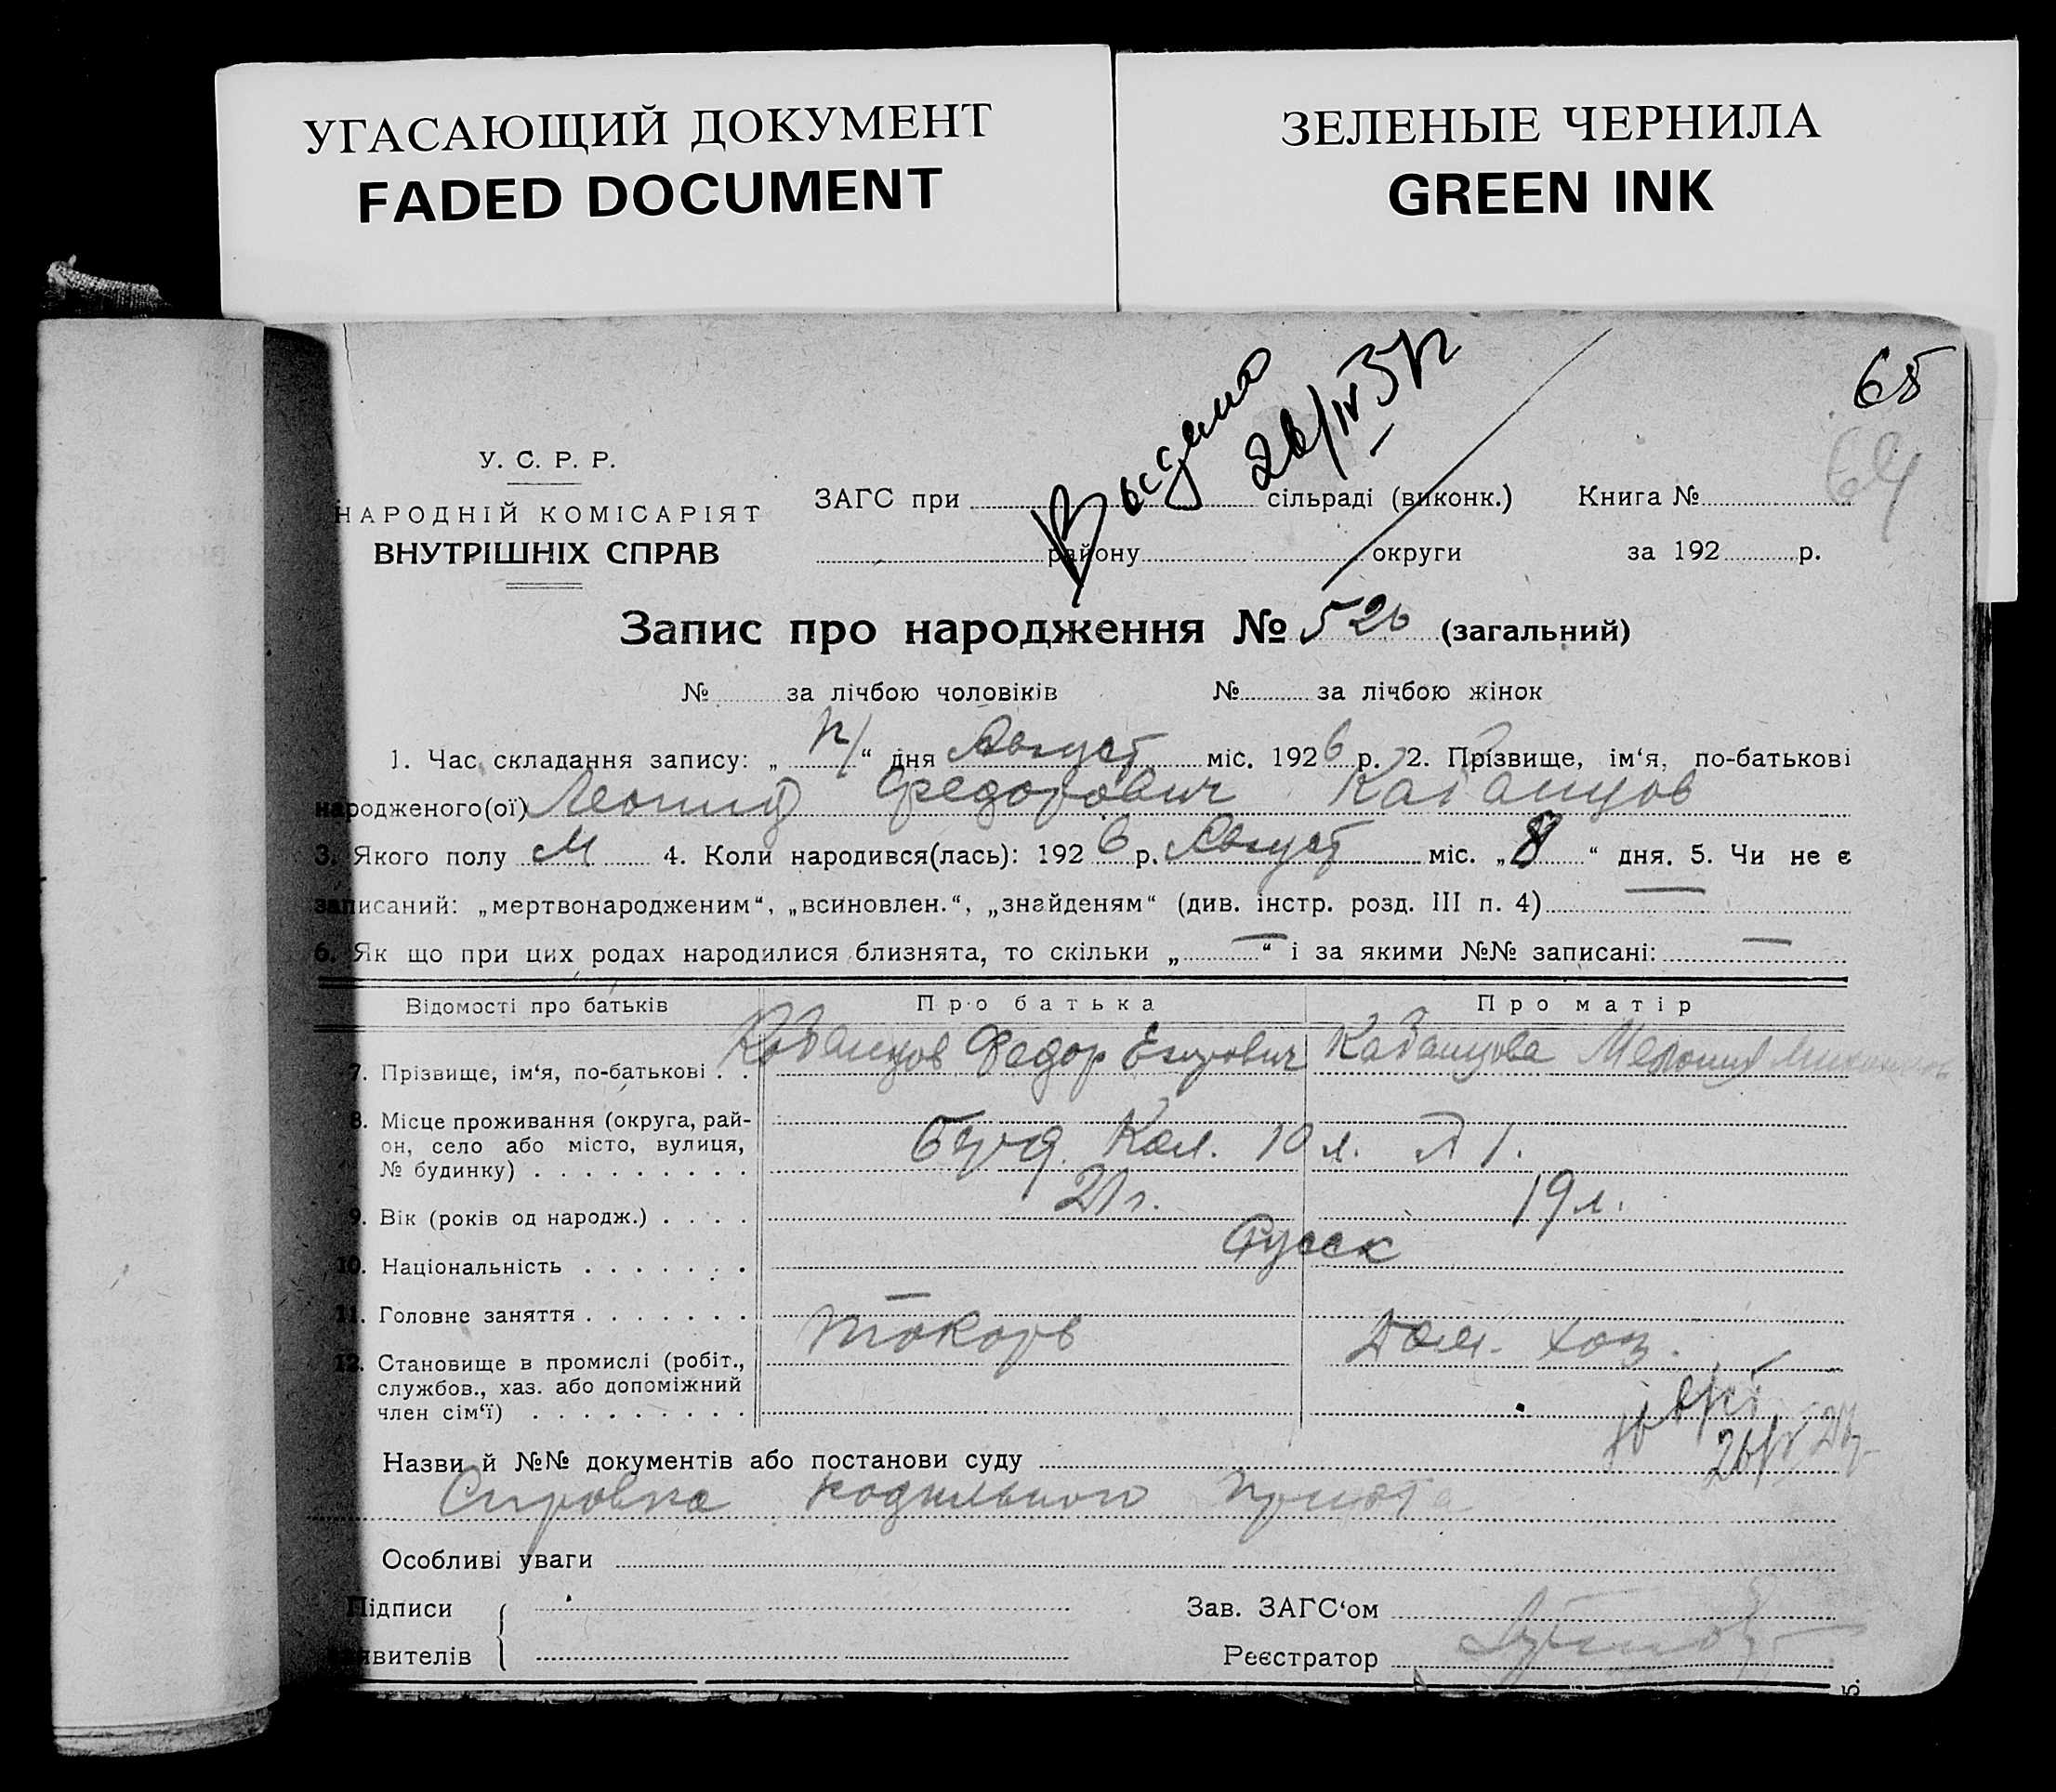 УГАСАЮЩИЙ ДОКУМЕНТ
FADED DOCUMENT
ЗЕЛЕНЫЕ ЧЕРНИЛА
GREEN INK
65
64
У. С. Р. Р.
НАРОДНІЙ КОМІСАРІЯТ
ВНУТРІШНІХ СПРАВ
ЗАГС при сільраді (виконк.) Книга №
району округи за 192 р.
Запис про народження № 526 (загальний)
№ за лічбою чоловіків № за лічбою жінок
1. Час складання запису: „ “ дня Август міс. 1926 р. 2. Прізвище, ім‘я, по-батькові
народженого(ої) Леонид Федорович Кабанцов
3. Якого полу м 4. Коли народився(лась): 1926 р. Август міс. „8“ дня. 5. Чи не є
записаний: „мертвонародженим“, „всиновлен.“, „знайденям“ (див. інстр. розд. III п. 4) —
6. Як що при цих родах народилися близнята, то скільки „—“ і за якими №№ записані: —
Відомості про батьків Про батька Про матір
7. Прізвище, ім‘я, по-батькові . . Кабанцов Федор Егорович Кабанцова
8. Місце проживання (округа, рай-
он, село або місто, вулиця,
№ будинку) . . . . . . . . . Кол. 10 л.
9. Вік (років од народж.) . . . . 21 г. 19 л.
10. Національність . . . . . . . Русск
11. Головне заняття . . . . . . . Токорь Дом. хоз.
12. Становище в промислі (робіт.,
службов., хаз. або допоміжний
член сім‘ї) . . . . . . . . .
Назви й №№ документів або постанови суду
Справка родильного приюта
Особливі уваги
Підписи
заявителів
Зав. ЗАГС‘ом
Реєстратор